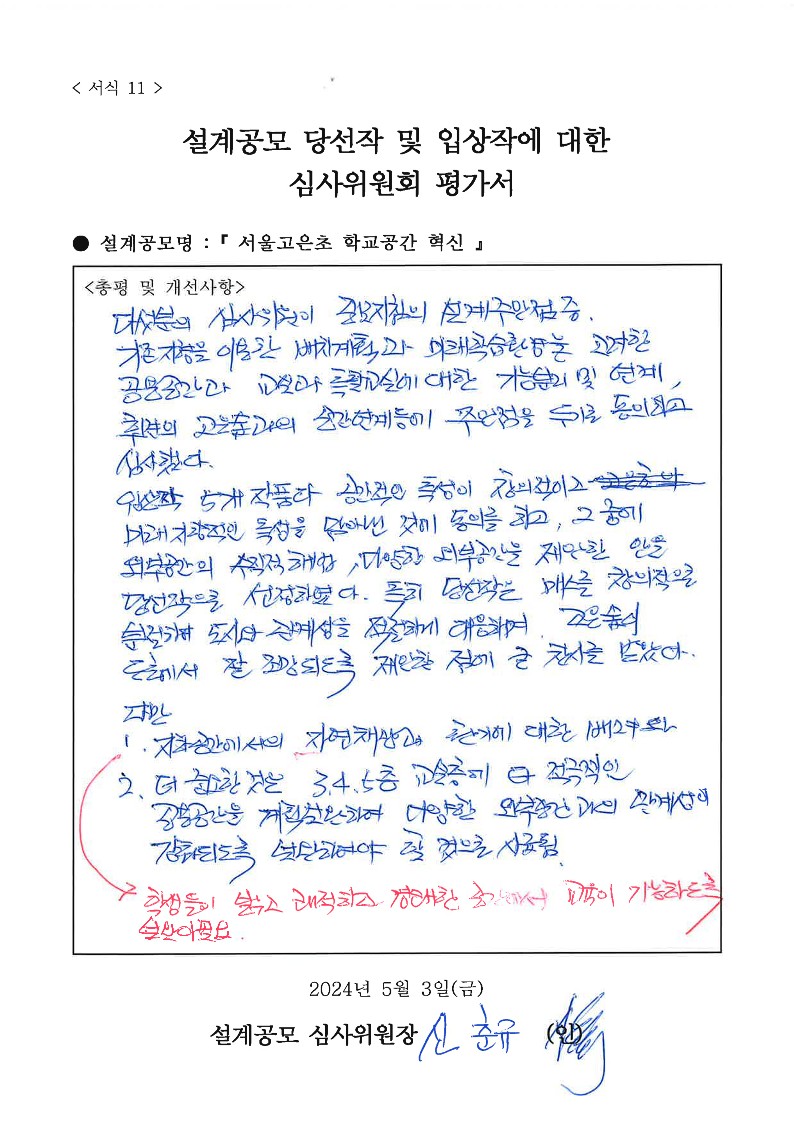 < 서식 11 >
설계공모 당선작 및 입상작에 대한
심사위원회 평가서
● 설계공모명 : 『 서울고은초 학교공간 혁신 』
<총평 및 개선사항>
대부분의 심사위원이 공모지침의 설계주안점 중,
기존지형을 이용한 배치계획과 미래학습환경을 고려한
공용공간과 교실과 특활교실에 대한 기능분리 및 연계,
후면의 고은숲과의 공간연계등에 주안점을 두기로 동의하고
심사했다.
5개 작품다 공간적인 특성이 창의적이고
미래지향적인 특성을 담아낸 것에 동의를 하고, 그 중에
외부공간의 수직적 해법, 다양한 외부공간을 제안한 안을
당선작으로 선정하였다. 특히 당선작은 매스를 창의적으로
분절하여 도시와 관계성을 적절하게 대응하며, 고은숲이
잘 조망되도록 제안한 점에 큰 찬사를 받았다.
다만
1. 지하공간에서의 자연채광과 환기에 대한
2. 더 중요한 것은 3.4.5층 교실층에 더 적극적인
공용공간을 계획하여 다양한 외부공간과의 관계성이
강화되도록 하여야 할 것으로 사료됨.
학생들이 밝고 쾌적하고 공간에서 교육이 가능하도록
2024년 5월 3일(금)
설계공모 심사위원장 신춘규 (인)